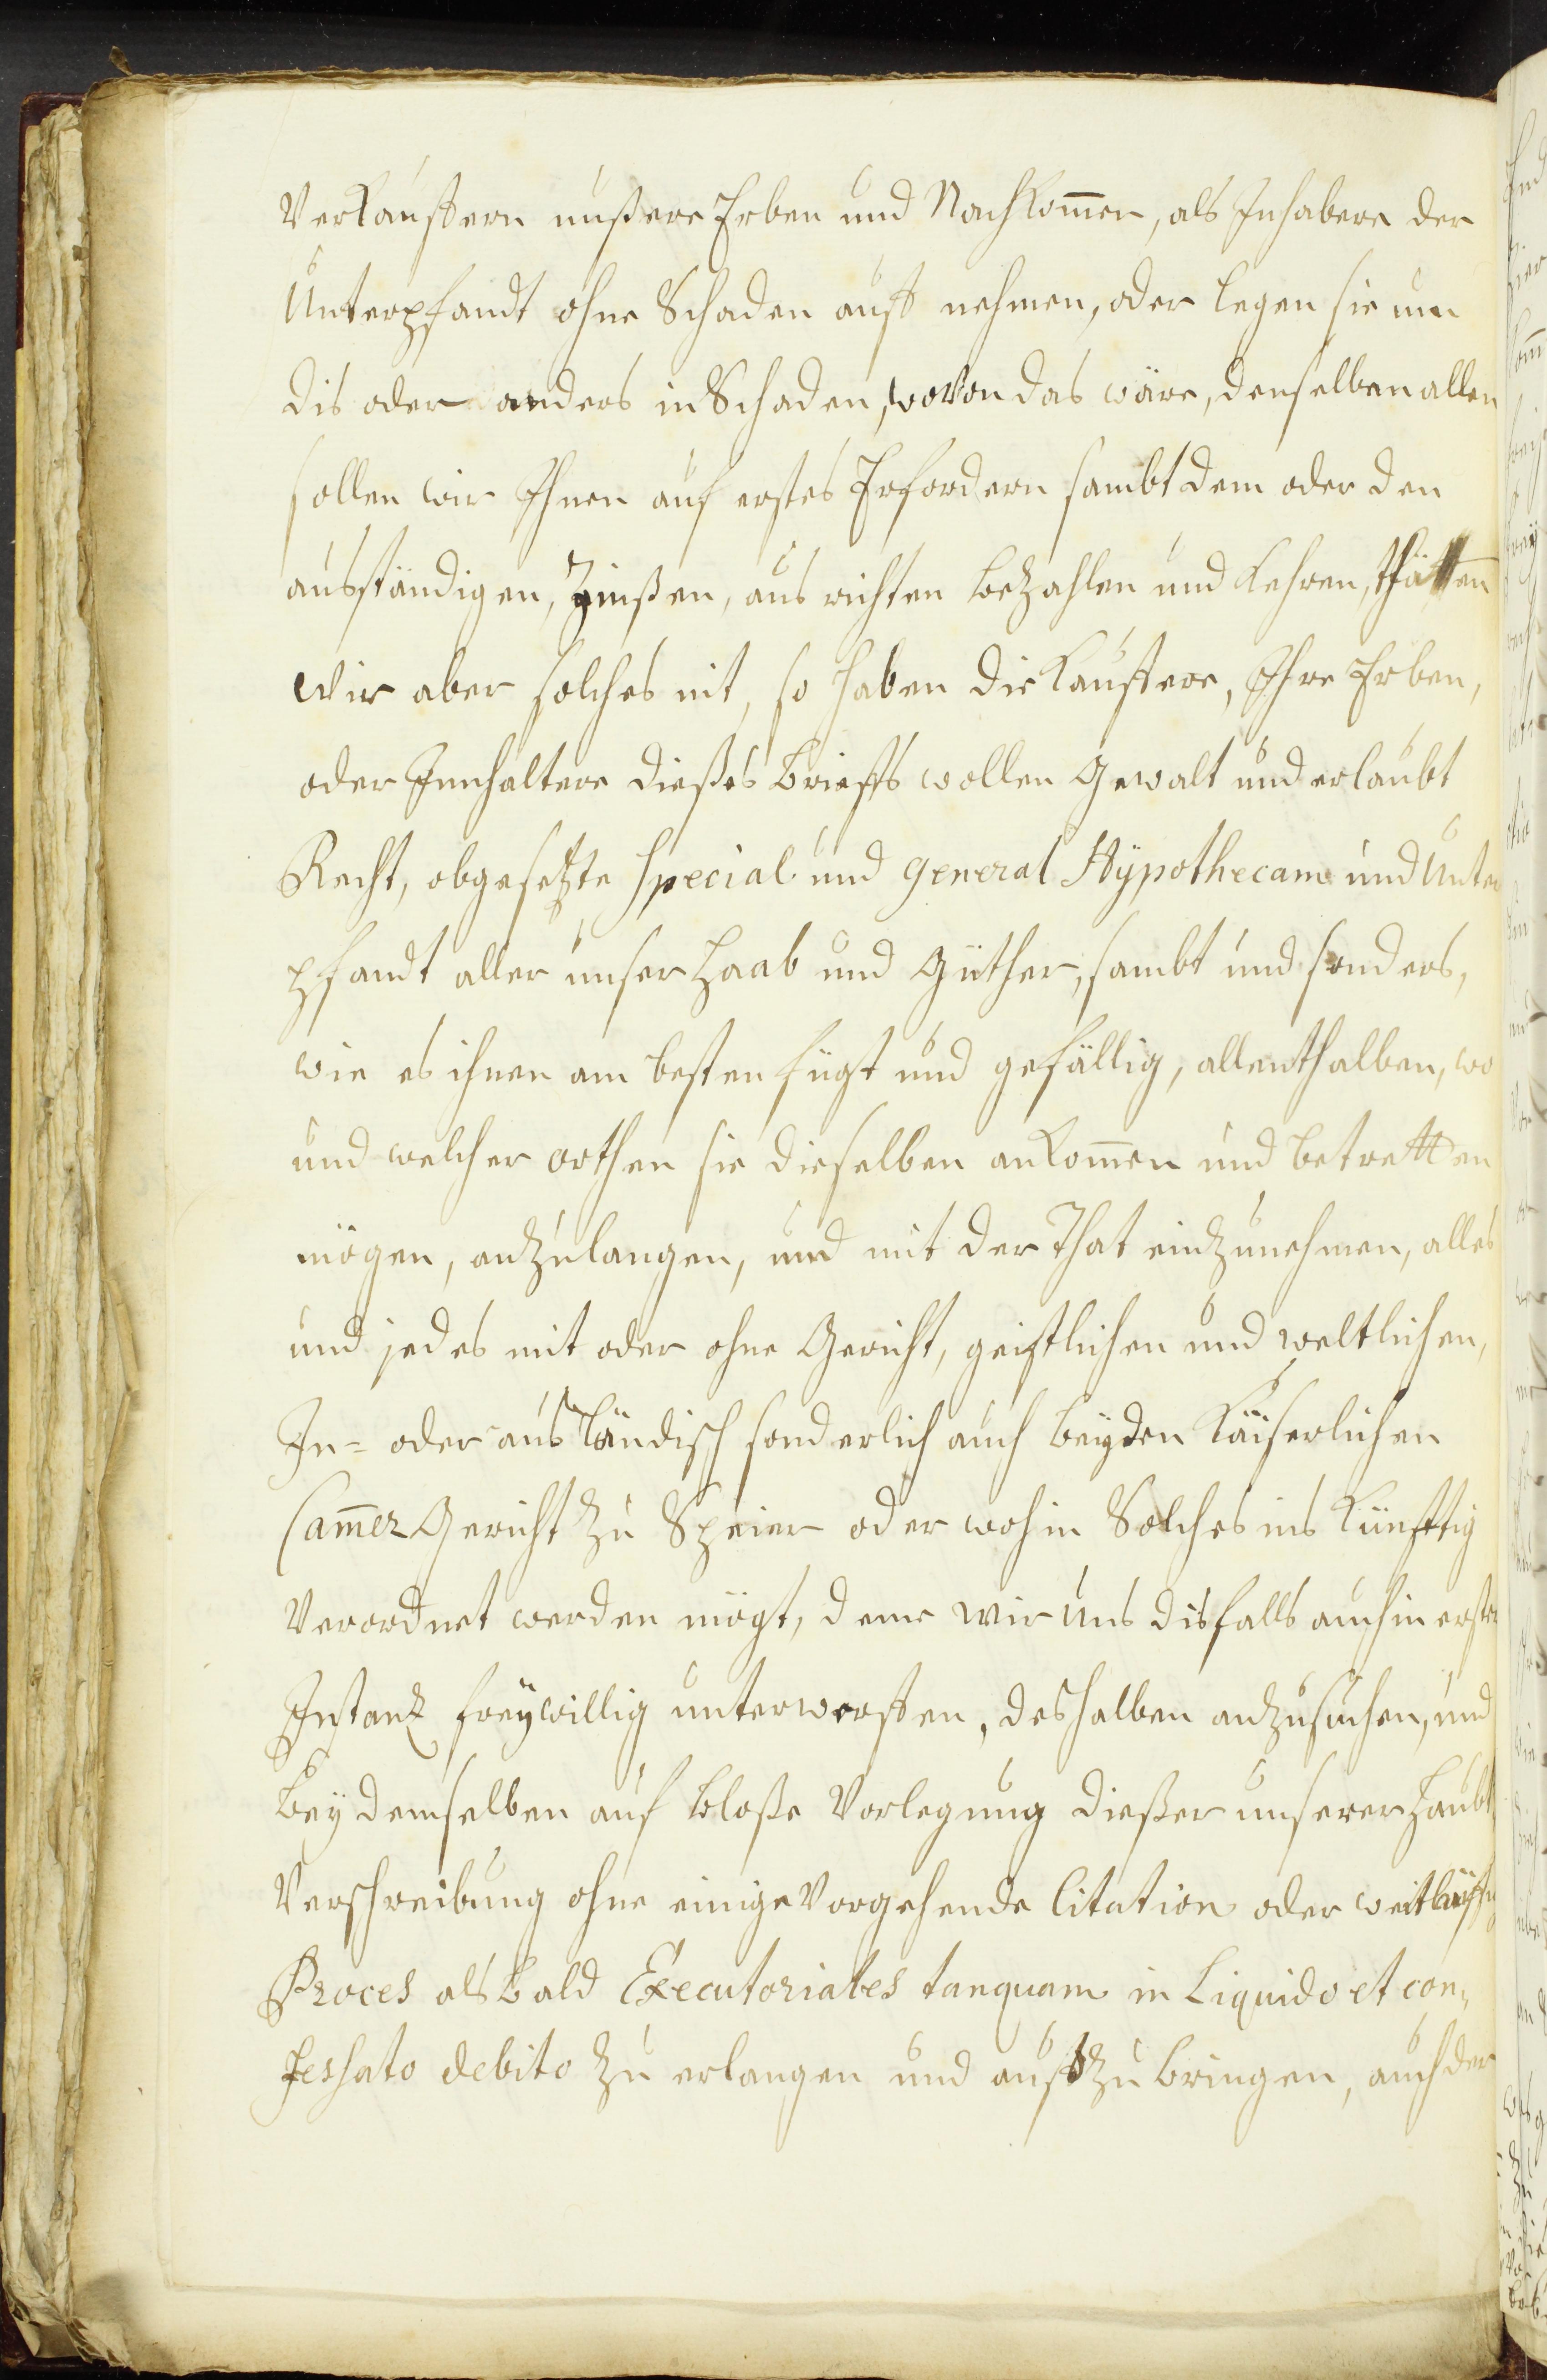 Verkauffern unßere Erben und Nachkom̄en, als Inhabere der
Unterpfandt ohne Schaden auff nehmen, oder legen sie um
dis oder anders in Schaden, wovon das wäre, denselben allen
sollen wir Ihnen auf erstes Erfordern sambt dem oder den
ausständigen, Zinßen, aus richten bezahlen und kehren, thätten
wir aber solches nit, so haben die Kauffere, Ihre Erben,
oder Innhaltere dießes Brieffs vollen Gewalt und erlaubt
Recht, obgesetzte Special und General Hÿpothecam und Unter
pfandt aller unser Haab und Güther, sambt und sonders,
wie es ihnen am besten fügt und gefällig, allenthalben, wo
und welcher orthen sie dieselben ankom̄en und betretten
mögen, anzulangen, und mit der That einzunehmen, alles
und jedes mit oder ohne Gericht, geistlichen und weltlichen,
In- oder ausländisch sonderlich auch beÿ den Käiserlichen
Cam̄er Gericht zu Speier oder wohin Solches ins künfftig
Verordnet werden mögt, deme wir uns disfalls auch in erster
Instanz freÿwillig unterwerffen, deshalben anzusuchen, und
beÿ demselben auf bloße Vorlegung dießer unserer Haubt
Verschreibung ohne einige Vorgehende Citation oder weitläuff
Proces alsbald Executoriales tanquam in Liquido et con„
fessato debito zu erlangen und auszubringen, auch der